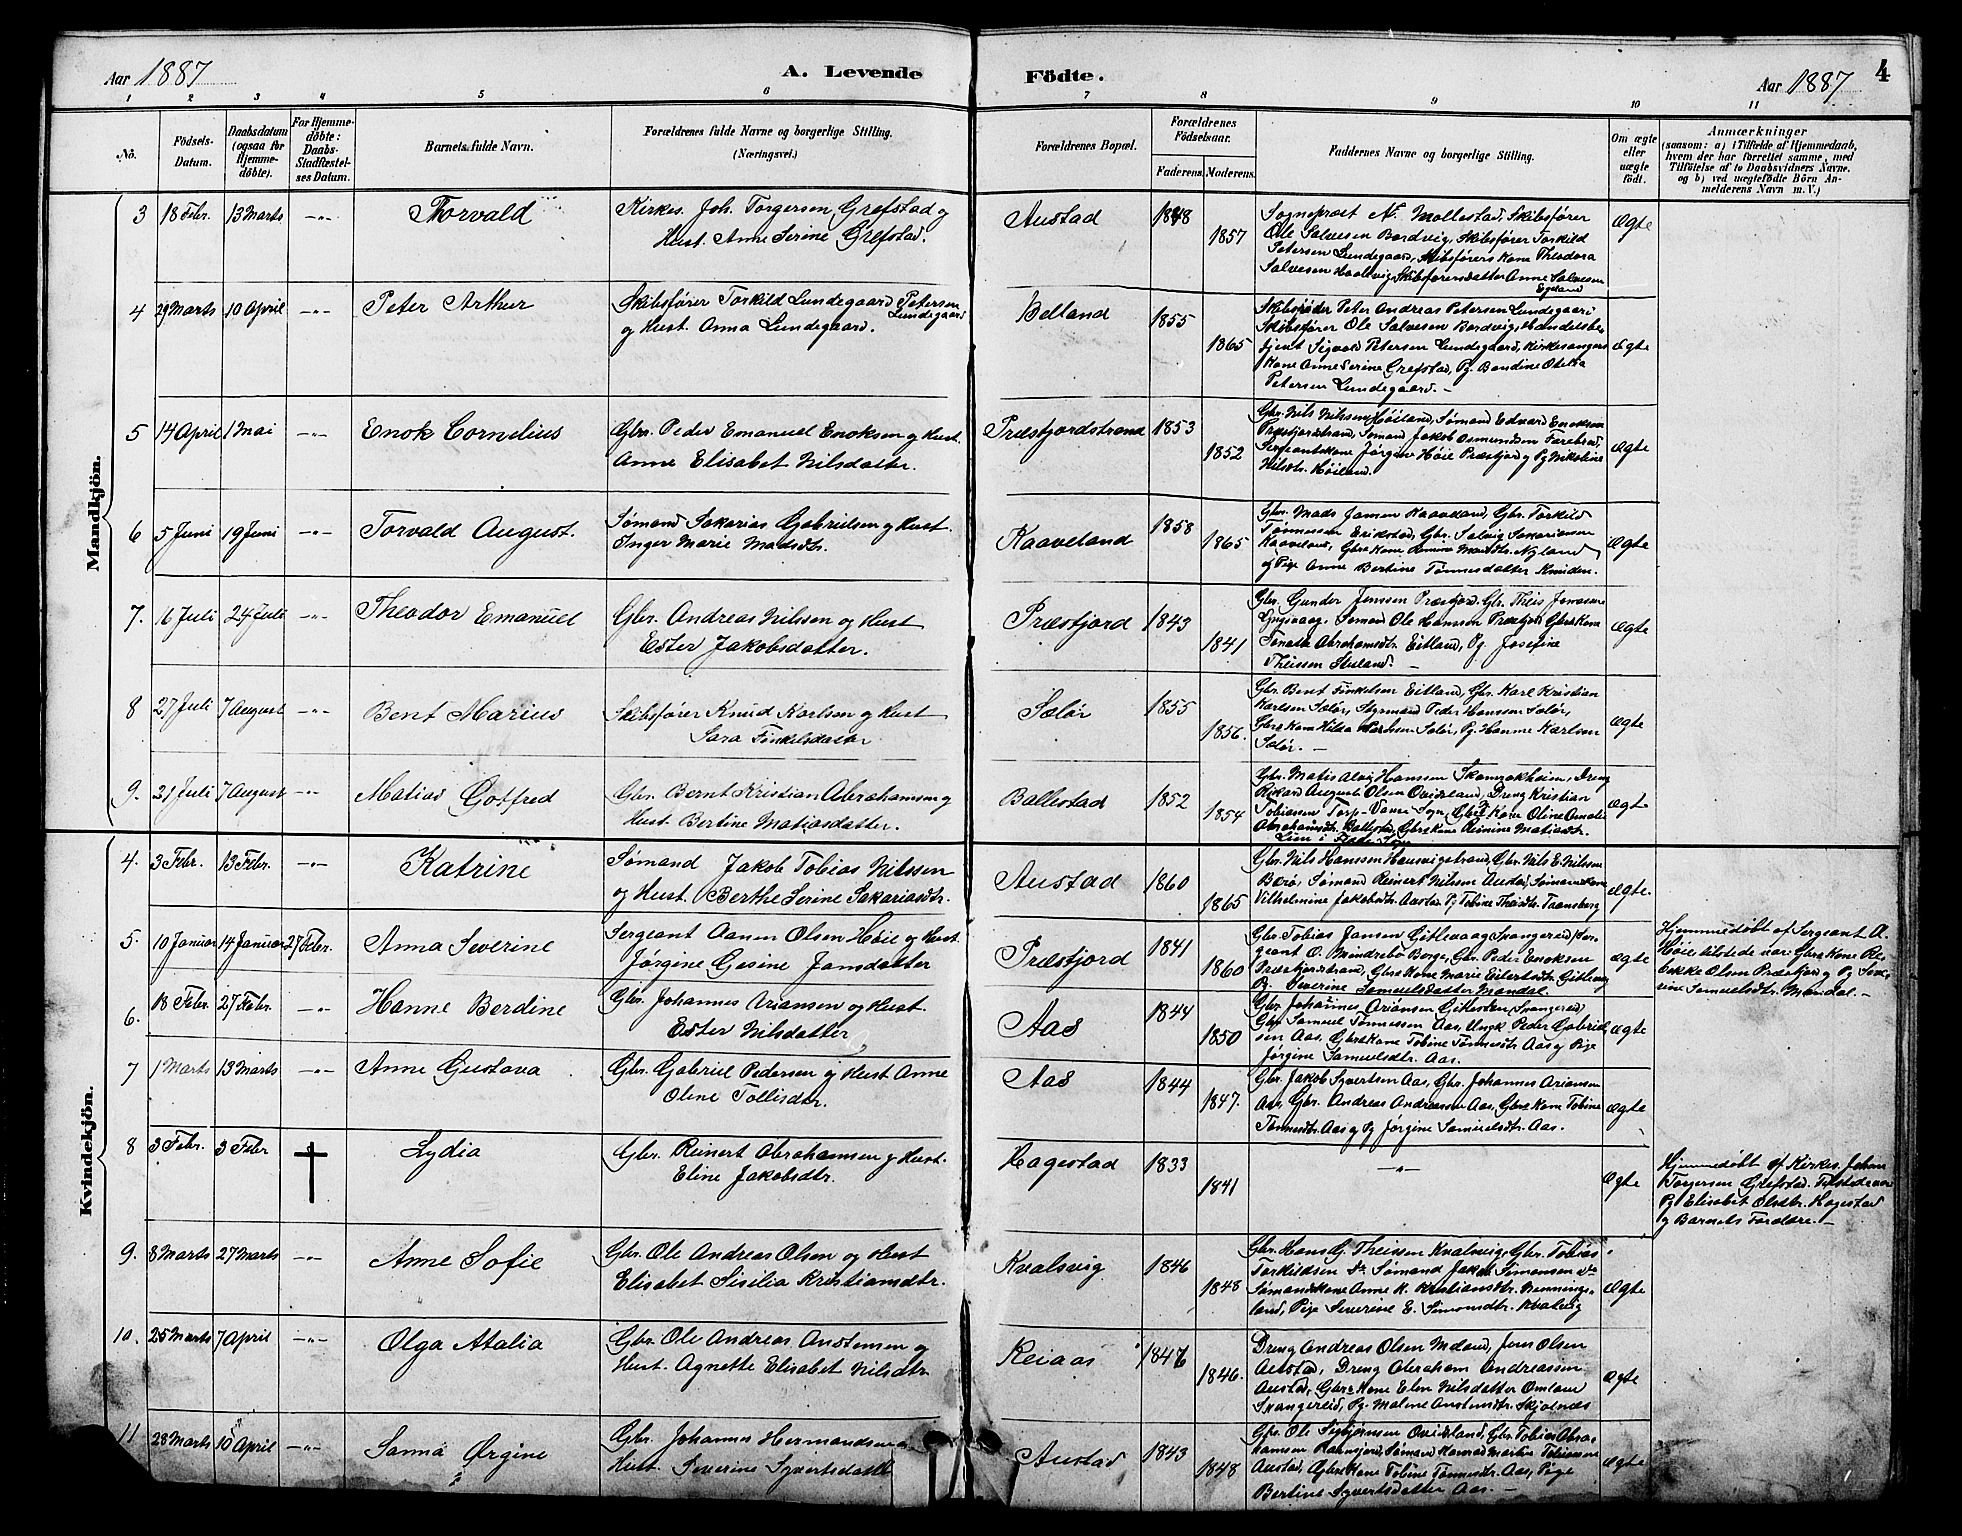 Aar 1887
A. Levende Födte.
Aar 1887
4
1 2 3 4 5 6 7 8 9 10 11
No.
Födsels-Datum.
Daabsdatum (ogsaa for Hjemme-döbte).
For Hjemme-döbte: Daabs-Stadfæstel-ses Datum.
Barnets fulde Navn.
Forældrenes fulde Navne og borgerlige Stilling. (Næringsvei.)
Forældrenes Bopæl.
Forældrenes Födselsaar.
Faderens. Moderens.
Faddernes Navne og borgerlige Stilling.
Om ægte eller uægte födt.
Anmærkninger
(saasom: a) i Tilfælde af Hjemmedaab, hvem der har forrettet samme, med Tilföielse af to Daabsvidners Navne. og b) ved uægtefödte Börn An-melderens Navn m. V.)
Mandkjön.
3 18 Febr. 13 Marts -"- Thorvald
Kirkes. Joh. Torgersen Grefstad og
Hust. Anne Serine Grefstad.
Austad 1848 1857
Sogneprest N. Mollestad, Skibsfører
Ole Salvesen Bordvig, Skibsfører Torkild
Petersen Lundegaard, Skibsførers Kone Theodora
Salvesen Skibsførersdatter Anne Salvesen
Egeland
Ægte
4 29 Marts 10 April -"- Peter Arthur
Skibsfører Torkild Lundegaard Petersen Lundegaard
og Hust. Anna Lundegaard.
Belland 1855 1865
Skibsreder Peter Andreas Petersen Lundegaard
Skibsfører Ole Salvesen Bordvig, Handelsbe,
tjent Sigvald Petersen Lundegaard, Kirkesangers
Kone Anne Serine Grefstad, Pg. Bendine Otelia
Petersen Lundegaard. -
ægte
5 14 April 1 Mai -"- Enok Cornelius
Gbr. Peder Emanuel Enoksen og Hust.
Anne Elisabet Nilsdatter.
Præstfjordstrand 1853 1852
Gbr. Nils Nilssen Høiland, Sømand Edvard Enoksen
Præstfjordstrand, Sømand Jakob Osmundsen
Sergeantskone Jørgine Høie Præstfjord og Pg. Nikoline
Nilsdtr. Høiland.
ægte
6 5 Juni 19 Juni -"- Torvald August.
Sømand Sakarias Gabrielsen og Hust.
Inger Marie Madsdtr.
Kaaveland 1858 1865
Gbr. Mads Jansen Kaaveland, Gbr. Torkild
Tønnessen Erikstad, Gbr. Salvig Sakariassen
Kaaveland, Gbrs Kone Madsdtr. Nyland
og Pige Anne Bertine Tønnesdatter Knuden.
ægte
7. 16 Juli 24 Juli -"- Theodor Emanuel
Gbr. Andreas Nilssen og Hust
Ester Jakobsdatter.
Præstfjord 1843 1841
Gbr. Gunder Jenssen Præstfjord, Gbr. Theis Jonassen
Sømand Ole Hanssen Præstfjord Gbrs Kone
Tonette Abrahamsdtr. Eitland, Pg. Josefine
Theissen -
Ægte
8 27 Juli 7 August -"- Bent Marius
Skibsfører Knud Karlsen og Hust
Sara Finkelsdatter
Salør 1855 1856.
Gbr. Bent Finkelsen Eitland, Gbr. Karl Kristian
Karlsen Salør, Peder Hanssen Salør,
Gbrs Kone Hilda Salør, Pg. Hanne Karlsen
Salør. -
ægte
9. 21 Juli 7 August -"- Matias Gotfred
Gbr. Bernt Kristian Abrahamsen og
Hust. Bertine Matiasdatter.
Ballestad 1852 1854
Gbr. Matis Hanssen Dreng
Rikard August Olsen Qvisland, Dreng Kristian
Tobiassen Torp Vanse Sogn, Gbrs Kone Oline Amalie
Abrahamsdtr. Ballestad, Gbrs Kone Reinine Matiasdtr.
ægte
Kvindekjön.
4. 3 Febr. 13 Febr. -"- Katrine
Sømand Jakob Tobias Nilssen
og Hust. Berthe Serine Sakariasdtr.
Austad 1860 1865
Gbr. Nils Hanssen Gbr. Nils E. Nilssen
Berø, Sømand Reinert Nilssen Austad, Sømandskone
Vilhelmine Jakobsdtr. Austad Pg Tobine Theisdtr.
ægte.
5. 10 Januar 14 Januar 27 Febr. Anna Severine
Sergeant Aanen Olsen Høie og Hust.
Jørgine Gesine Jansdatter
Præstfjord 1841 1860
Gbr. Tobias Jansen Gitlevaag Spangereid, Ser-
geant O. Mindrebø Gbr. Peder Enoksen
Præstfjordstrand, Gbrs Kone Marie Eilertsdtr. Gitlevag
Pg. Severine Samuelsdatter Mandal.
ægte
Hjemmedøbt af Sergeant A.
Høie tilstede var: Gbrs Kone Re-
bekke Olsen Præstfjord og Pg. Seve-
rine Samuelsdtr. Mandal. -
6. 18 Febr. 27 Febr. -"- Hanne Berdine
Gbr. Johannes Ariansen og Hust.
Ester Nilsdatter
Aas 1844 1850
Gbr. Johannes Ariansen Spangereid,
Gbr. Samuel Tønnessen Aas, Ungk. Peder Gabriel-
sen Aas, Gbrs Kone Tobine Tønnesdtr. Aas og Pige
Jørgine Samuelsdtr. Aas.
ægte
7 1 Marts 13 Marts -"- Anne Gustava
Gbr. Gabriel Pedersen og Hust Anne
Oline Tollisdtr.
Aas 1844 1847.
Gbr. Jakob Syvertsen Aas, Gbr. Johannes Ariansen
Aas, Gbr. Andreas Andreassen Aas, Gbrs Kone Tobine
Tønnesdtr. Aas og Pg Jørgine Samuelsdtr. Aas.
ægte
8 3 Febr. 3 Febr † Lydia
Gbr. Reinert Abrahamsen og Hust.
Eline Jakobsdtr.
Hagestad 1833 1841
-"-
Ægte
Hjemmedøbt af Kirkes. Johan
Torgersen Grefstad. Tilstede var
Pg Elisabet Olsdtr. Hagestad
og Barnets Forældre. -
9. 8 Marts 27 Marts -"- Anne Sofie
Gbr. Ole Andreas Olsen og Hust
Elisabet Sisilia Kristiansdtr.
Kvalsvig 1846 1848
Gbr. Hans G. Theissen Kvalsvig, Gbr. Tobias
Torkildsen Do. Sømand Jakob Simonsen Do
Sømandskone Anne K. Kristiansdtr. Rennings-
land, Pige Severine E. Simonsdtr. Kvalsvig
Ægte
10. 25 Marts 7 April -"- Olga Atalia
Gbr. Ole Andreas Anstensen og
Hust. Agnette Elisabet Nilsdtr.
Reiaas 1847 1846.
Dreng Andreas Olsen Jens Olsen
Austad, Dreng Abraham Andreassen
Austad, Gbrs Kone Elen Nilsdatter Omland
Spangereid, Pg. Malene Anstensdtr. Skjolnes
ægte
11 28 Marts 10 April -"- Sanna Ørgine
Gbr. Johannes Hermandsen og
Hust. Severine Syvertsdatter
Austad 1843 1848
Gbr. Ole Sigbjørnsen Qvisland, Gbr. Tobias Abra-
hamsen Sømand Konrad Martin Tobiassen
Austad, Gbrs Kone Tobine Tønnesdtr. Aas, Pige
Bertine Syvertsdatter Aas. -
ægte